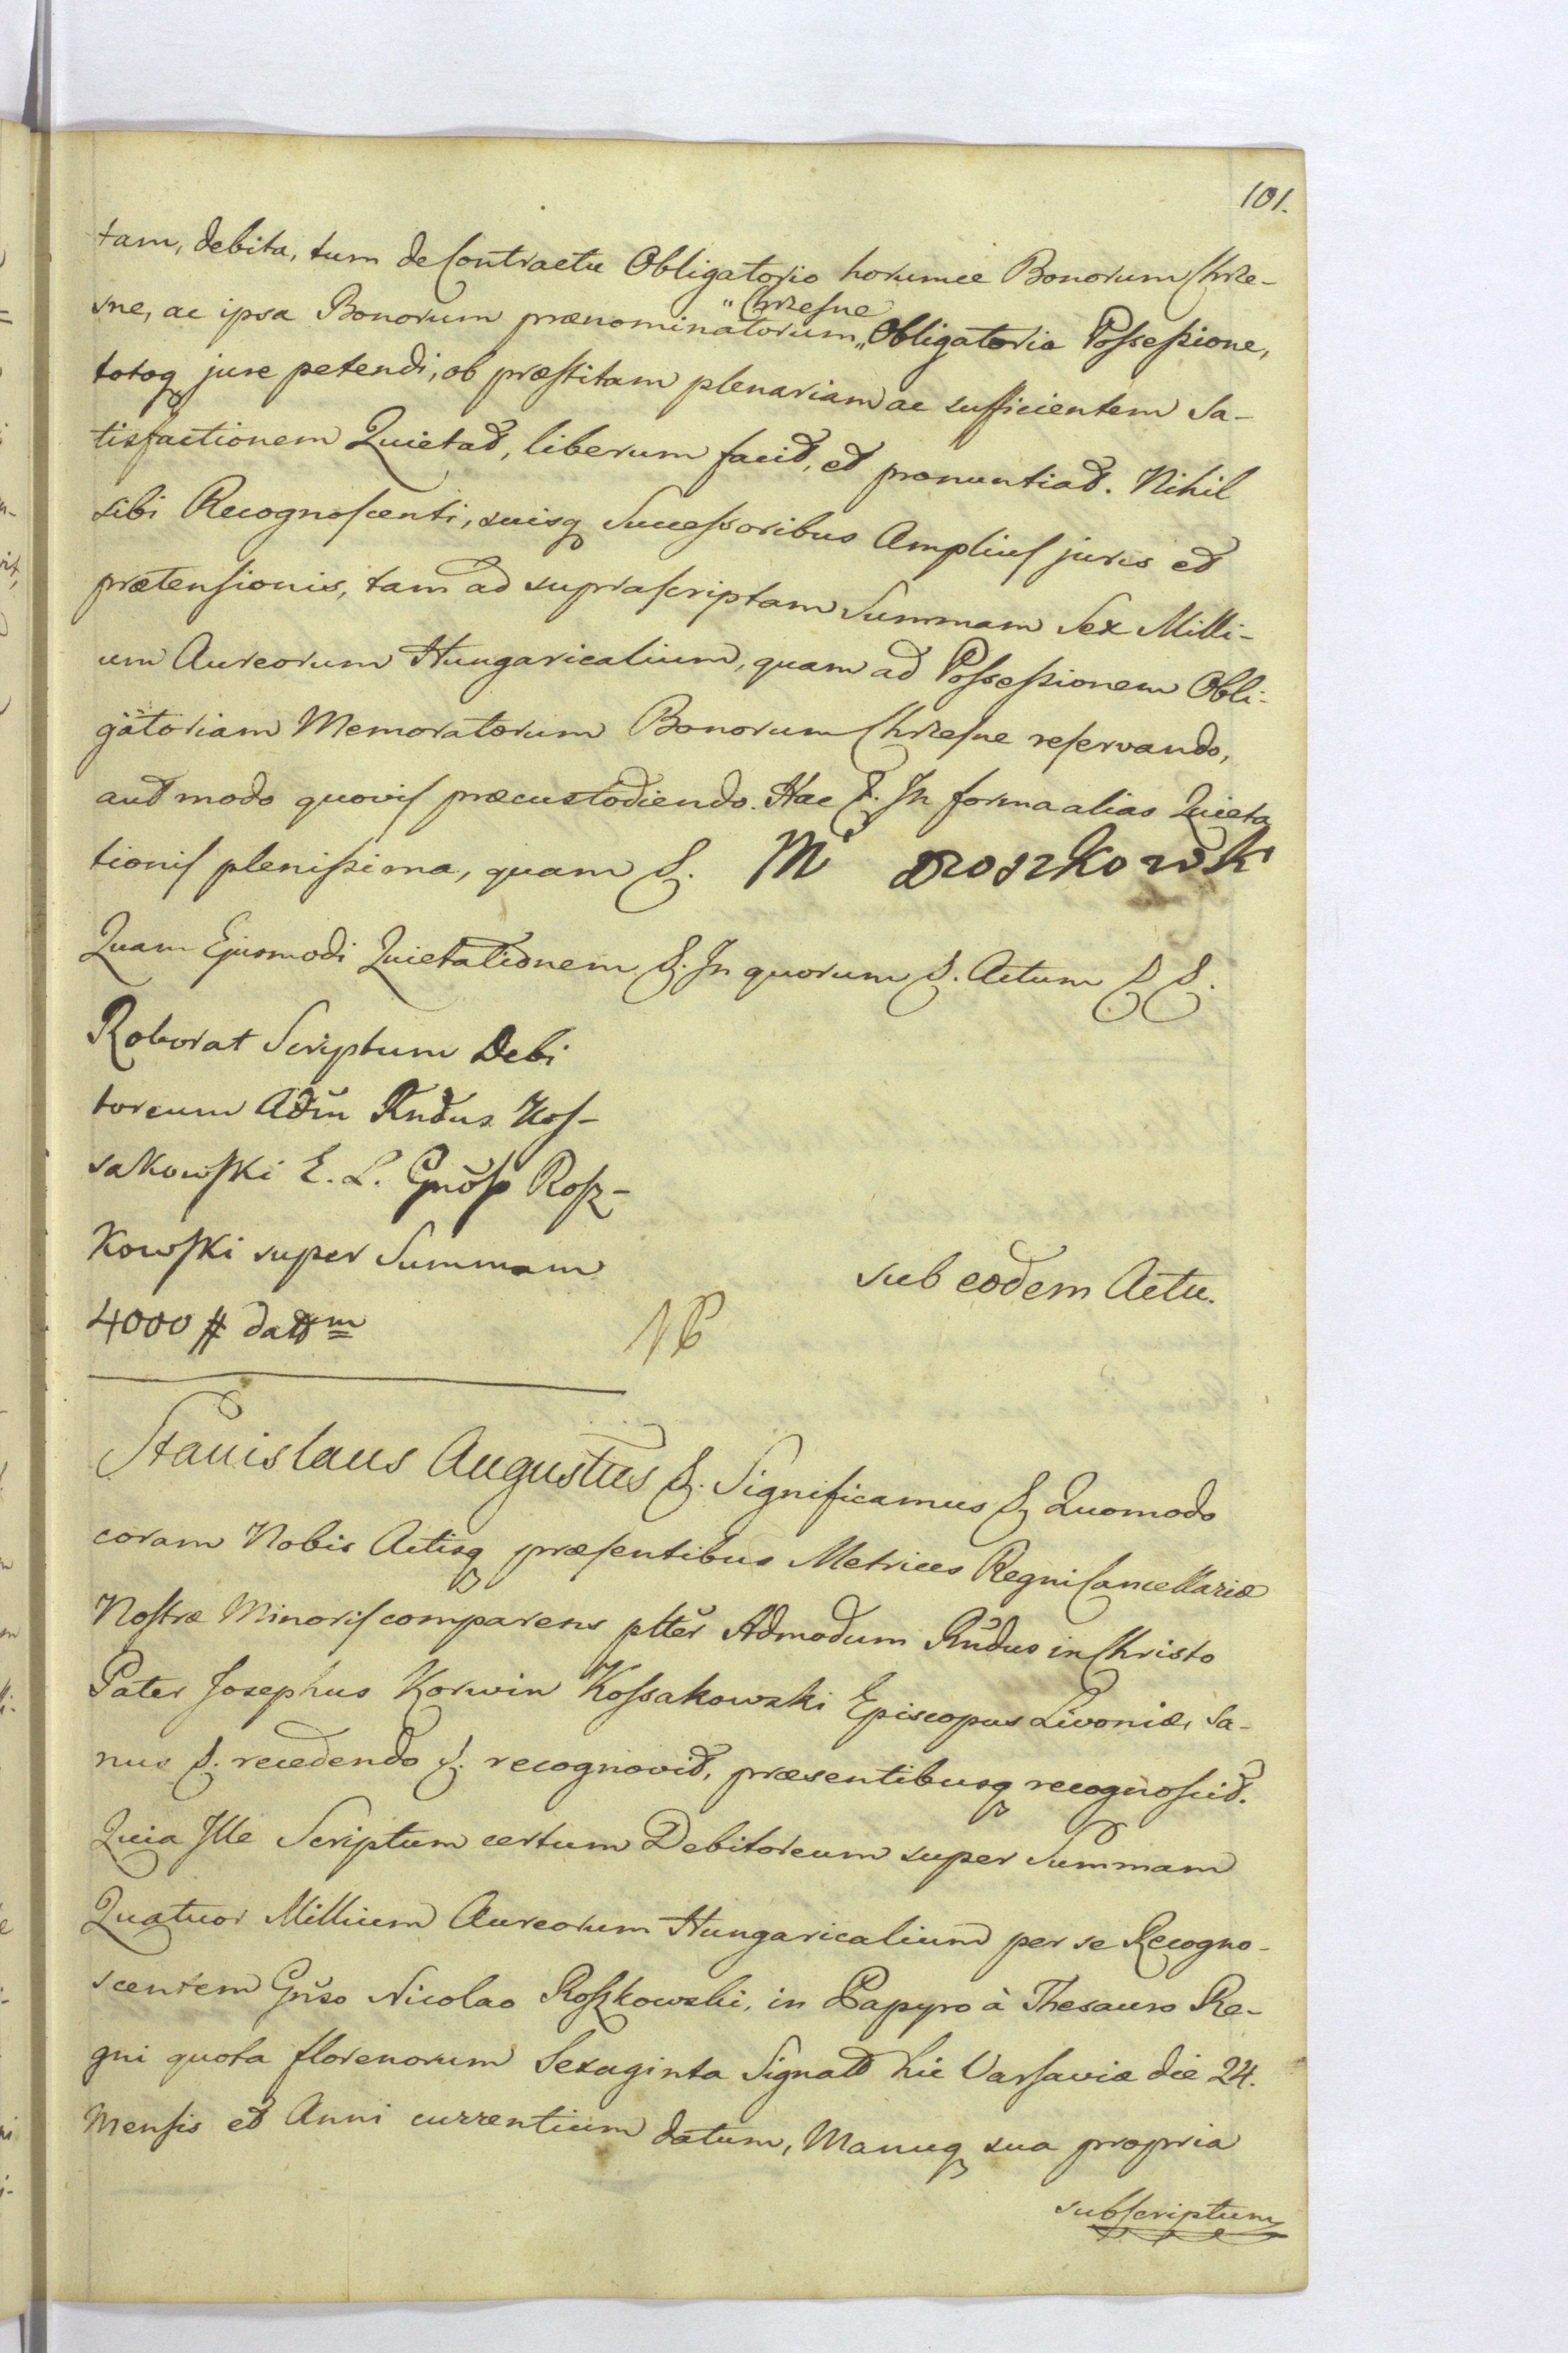 101.
tam, debita, tum de Contractu Obligatorio horumce Bonorum Chrze-
sne, ac ipsa Bonorum prænominatorum „Chrzesne„ Obligatoria Possessione,
totoq jure petendi, ob præstitam plenariam ac sufficientem Sa-
tisfactionem Quietat, liberum facit, et pronuntiat. Nihil
sibi Recognoscenti, suisq Successoribus Amplius juris et
prætensionis, tam ad suprascriptam Summam Sex Milli-
um Aureorum Hungaricalium, quam ad Possessionem Obli-
gatoriam Memoratorum Bonorum Chrzesne reservando,
aut modo quovis præcustodiendo. Hac &. In forma alias Quieta
tionis plenissima, quam &. M Roszkowski
Quam Ejusmodi Quietationem &. In quorum &. Actum &. &.
Roborat Scriptum Debi
toreum Adm Rndus Kos-
sakowski E. L. Gnoso Rosz-
kowski super Summam
4000 # datt m
sub eodem Actu.
Stanislaus Augustus &. Significamus & Quomodo
coram Nobis Actisq præsentibus Metrices Regni Cancellariæ
Nostræ Minoris comparens plter Admodum Rndus in Christo
Pater Josephus Korwin Kossakowski Episcopus Livoniæ, sa-
nus &. recedendo &. recognovit, præsentibusq recognoscit.
Quia Ille Scriptum certum Debitoreum super Summam
Quatuor Millium Aureorum Hungaricalium per se Recogno-
scentem Gnso Nicolao Roszkowski, in Papyro à Thesauro Re-
gni quota florenorum Sexaginta Signatt hic Varsaviæ die 24.
Mensis et Anni currentium datum, Manuq sua propria
subscriptum